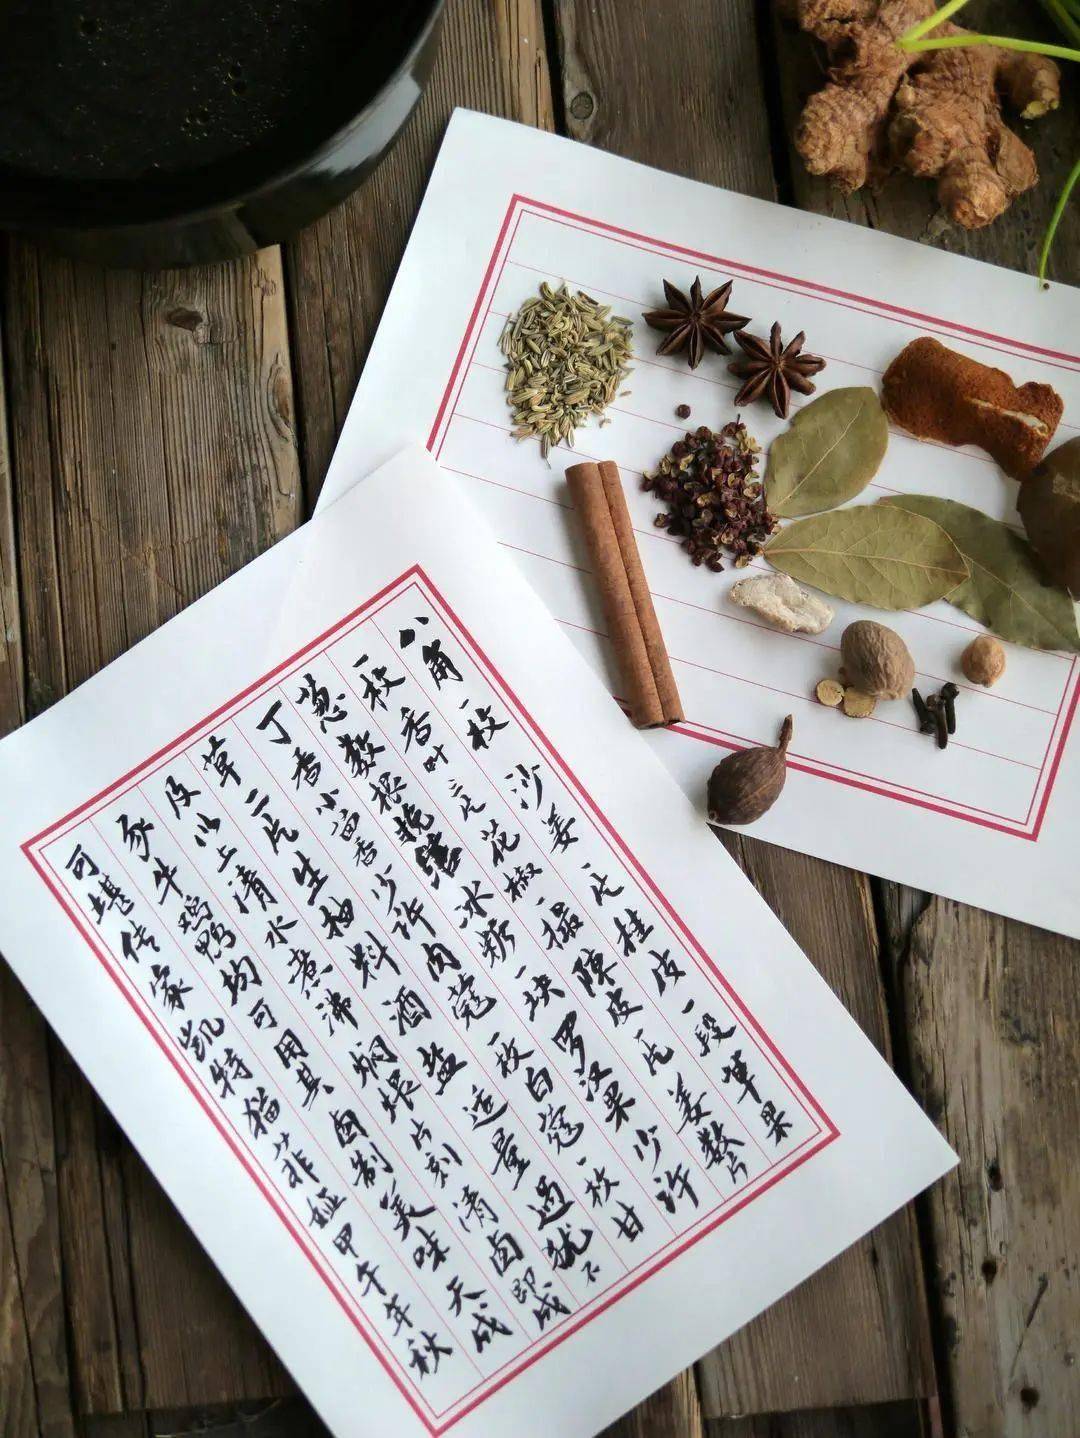 八角一枚沙姜一片桂皮一段草果
一枚香叶三片花椒一撮陳皮一片姜数片
葱数根挽冰糖一块罗汉果少许
丁香小茴香少许肉蔻一枚白蔻一枚甘
草二片生抽料酒盐适量过犹不
及以上清水煮沸焖煨片刻清卤即成
豕牛鸡鸭均可用其卤制美味天成
可堪传家凯特猫菲娅甲午年秋